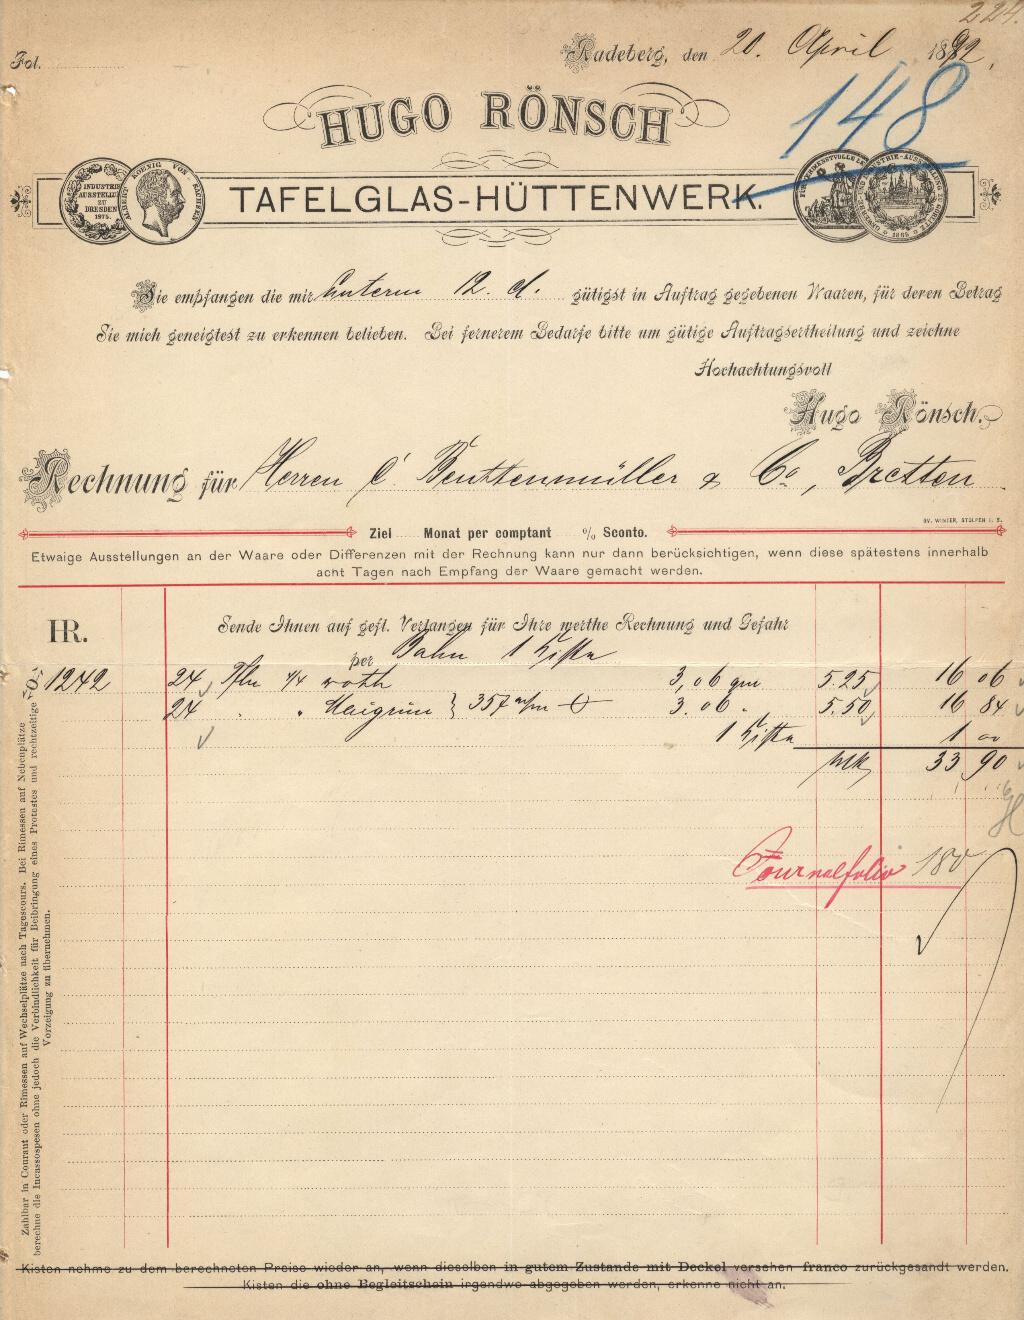 224.
Fol.
Radeberg, den 20. April 1892.
148
HUGO RÖNSCH
TAFELGLAS-HÜTTENWERK.
INDUSTRIE AUSSTELLUNG ZU DRESDEN 1875.
ALBERT KOENIG VON SACHSEN
Sie empfangen die mir unterm 12. d. gütigst in Auftrag gegebenen Waaren, für deren Betrag
Sie mich geneigtest zu erkennen belieben. Bei fernerem Bedarfe bitte um gütige Auftragsertheilung und zeichne
Hochachtungsvoll
Hugo Rönsch.
Rechnung für Herren C. Beuttenmüller & Co, Bretten
GV. WINTER, STOLPEN I. S.
Ziel Monat per comptant % Sconto.
Etwaige Ausstellungen an der Waare oder Differenzen mit der Rechnung kann nur dann berücksichtigen, wenn diese spätestens innerhalb
acht Tagen nach Empfang der Waare gemacht werden.
HR. Sende Ihnen auf gefl. Verlangen für Ihre werthe Rechnung und Gefahr
per Bahn 1 Kiste
1242 24 Tfln 4/4 roth 3,06 qm 5.25 16 06
24 " " Maigrün } 357 3.06 " 5.50 16 84
1 Kiste 1 00
Mk 33 90
Journalfolio 180
Zahlbar in Courant oder Rimessen auf Wechselplätze nach Tagescours. Bei Rimessen auf Nebenplätze
berechne die Incassospesen ohne jedoch die Verbindlichkeit für Beibringung eines Protestes und rechtzeitige
Vorzeigung zu übernehmen.
Kisten nehme zu dem berechneten Preise wieder an, wenn dieselben in gutem Zustande mit Deckel versehen franco zurückgesandt werden.
Kisten die ohne Begleitschein irgendwo abgegeben werden, erkenne nicht an.